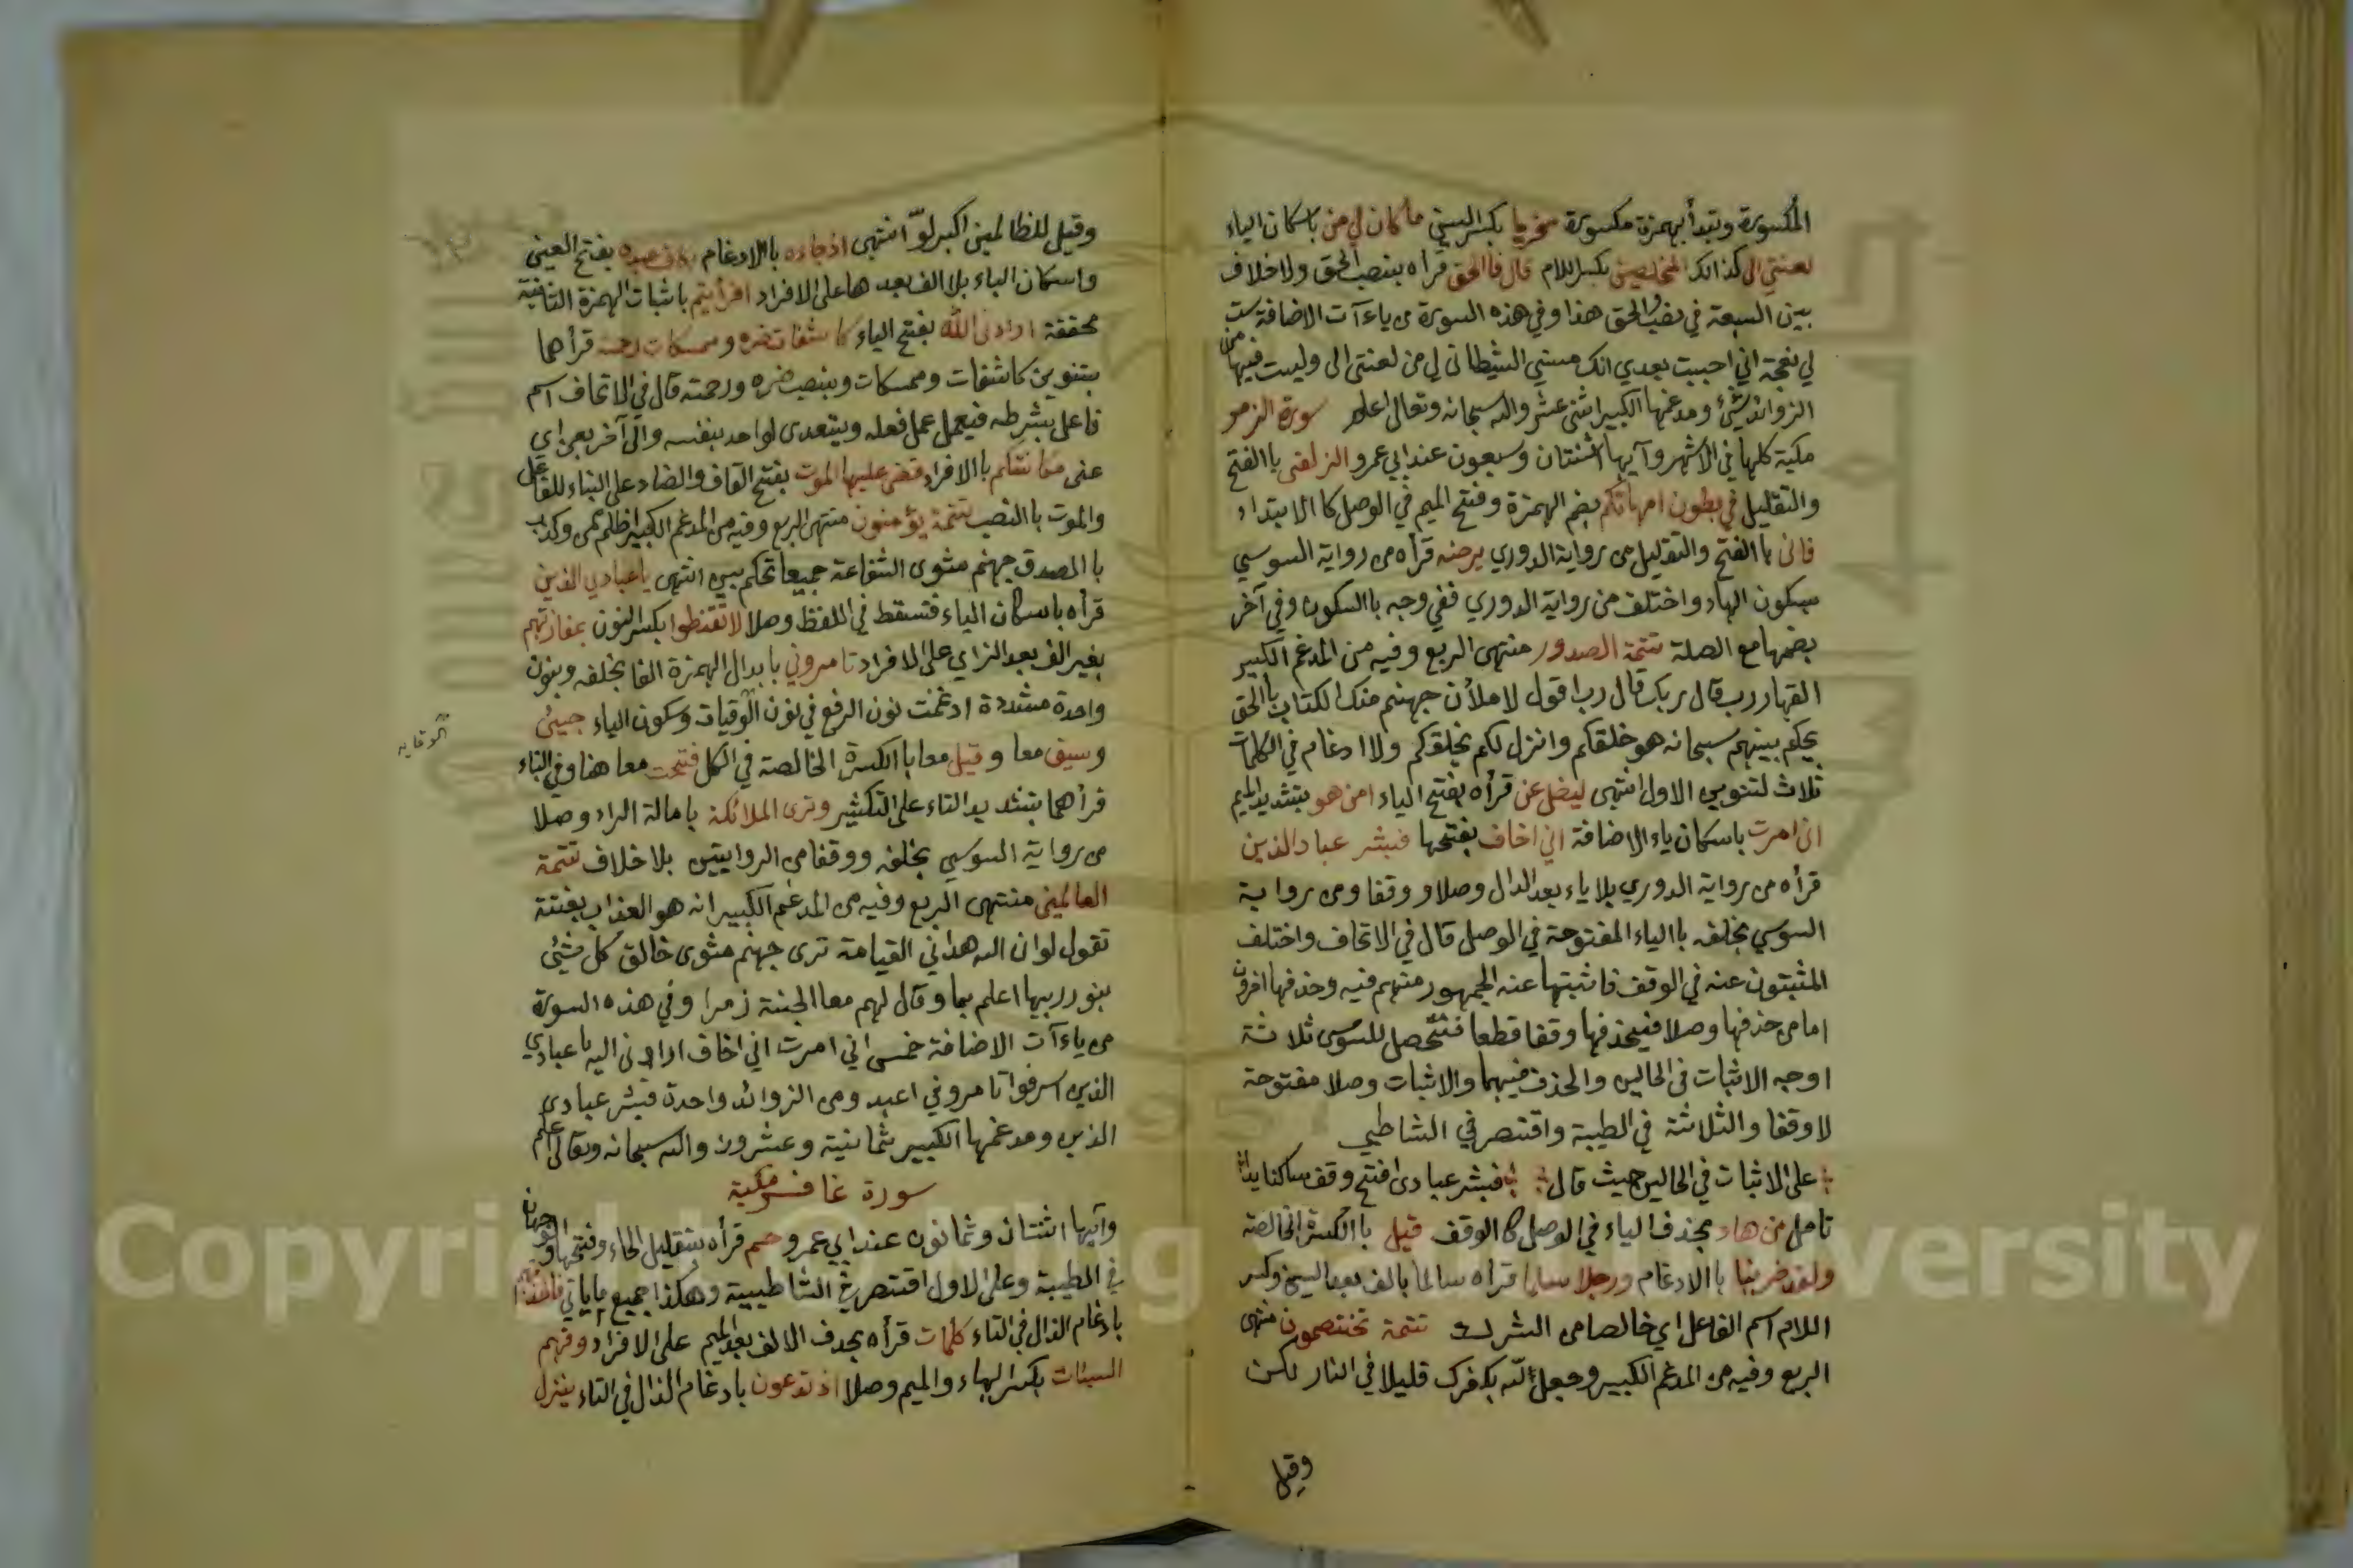 المكسورة وتبدأ بهمزة مكسورة سخريا بكسر السين ما كان لي من باسكان الياء
لعنتي الى كذالك المخلصين بكسر اللام قال فاالحق قرأه بنصب الحق ولاخلاف
بين السبعة في نصب والحق هذا وفي هذه السورة من ياءآت الاضافة ست
لي نعجة اني احببت بعدي انك مسني الشيطان لي من لعنتي الى وليست فيها من
الزوائد شئ ومدغمها الكبير اثنى عشر والله سبحانه وتعالى اعلم سورة الزمر
مكية كلها في الاشهر وآيها اثنتان وسبعون عند ابي عمرو الزلفى باالفتح
والتقليل في بطون امهاتكم بضم الهمزة وفتح الميم في الوصل كاالابتداء
فانى باالفتح والتقليل من رواية الدوري يرضه قرأه من رواية السوسي
بسكون الهاء واختلف من رواية الدوري ففي وجه باالسكون وفي آخر
بضمها مع الصلة تتمة الصدور منتهى الربع وفيه من المدغم الكبير
القهار رب قال ربك قال رب اقول لاملأن جهنم منك الكتاب باالحق
يحكم بينهم سبحانه هو خلقكم وانزل لكم يخلقكم ولا ادغام في الكلمات
ثلاث لتنوين الاول انتهى ليضل عن قرأه بفتح الياء امن هو بتشديد الميم
اني امرت باسكان ياء الاضافة اني اخاف بفتحها فبشر عباد الذين
قرأه من رواية الدوري بلا ياء بعد الدال وصلا ووقفا ومن رواية
السوسي بخلفه باالياء المفتوحة في الوصل قال في الاتحاف واختلف
المثبتون عنه في الوقف فاثبتها عنه الجمهور منهم فيه وحذفها آخرون
اما من حذفها وصلا فيحذفها وقفا قطعا فتحصل للسوسي ثلاثة
اوجه الاثبات في الحالين والحذف فيهما والاثبات وصلا مفتوحة
لا وقفا والثلاثة في الطيبة واقتصر في الشاطبي
على الاثبات في الحالين حيث قال فبشر عبادي افتح وقف ساكنا يدا
تامل من هاد بحذف الياء في الوصل كاالوقف قيل باالكسرة الخالصة
ولقد ضربنا باالادغام ورجلا سلما قرأه سالما بالف بعد السين وكسر
اللام اسم الفاعل اي خالصا من الشرك تتمة تختصمون منتهى
الربع وفيه من المدغم الكبير وجعل لله بكفرك قليلا في النار لكن
وقيل
وقيل للظالمين اكبر لو انتهى اذ جاءه باالادغام بكاف عبده بفتح العين
واسكان الباء بلا الف بعدها على الافراد افرأيتم باثبات الهمزة الثانية
محققة ارادني الله بفتح الياء كاشفات ضره وممسكات رحمته قرأهما
بتنوين كاشفات وممسكات وبنصب ضره ورحمته قال في الاتحاف اسم
فاعل بشرطه فيعمل عمل فعله ويتعدى لواحد بنفسه والى آخر بعن اي
عني مكانتكم باالافراد قضى عليها الموت بفتح القاف والضاد على البناء للفاعل
والموت باالنصب تتمة يؤمنون منتهى الربع وفيه من المدغم الكبير اظلم ممن وكذب
باالصدق جهنم مثوى الشفاعة جميعا تحكم بين انتهى ياعبادي الذين
قرأه باسكان الياء فتسقط في اللفظ وصلا لا تقنطوا بكسر النون بمفازتهم
بغير الف بعد الزاي على الافراد تامروني بابدال الهمزة الفا بخلفه وبنون
واحدة مشددة ادغمت نون الرفع في نون الوقيات وسكون الياء جيئ
الوقاية
وسيق معا وقيل معا باالكسرة الخالصة في الكل فتحت معا هنا وفي النباء
قرأهما بتشديد التاء على التكثير وترى الملائكة بامالة الراء وصلا
من رواية السوسي بخلفه ووقفا من الروايتين بلا خلاف تتمة
العالمين منتهى الربع وفيه من المدغم الكبير انه هو العذاب بغتة
تقول لو ان الله هداني القيامة ترى جهنم مثوى خالق كل شيئ
بنور ربها اعلم بما وقال لهم معا الجنة زمرا وفي هذه السورة
من ياءآت الاضافة خمس اني امرت اني اخاف ارادني اليه ياعبادي
الذين اسرفوا تامروني اعبد ومن الزوائد واحدة فبشر عبادي
الذين ومدغمها الكبير ثمانية وعشرون والله سبحانه وتعالى اعلم
سورة غافر مكية
وآيها اثنتان وثمانون عند ابي عمرو حم قرأه بتقليل الحاء وفتحها والوجهان
في الطيبة وعلى الاول اقتصر في الشاطبية وهكذا جميع ما ياتي فاخذتهم
بادغام الذال في التاء كلمات قرأه بحذف الالف بعد الميم على الافراد وقهم
السيئات بكسر الهاء والميم وصلا اذ تدعون بادغام الذال في التاء ينزل
Copyright © King Saud University